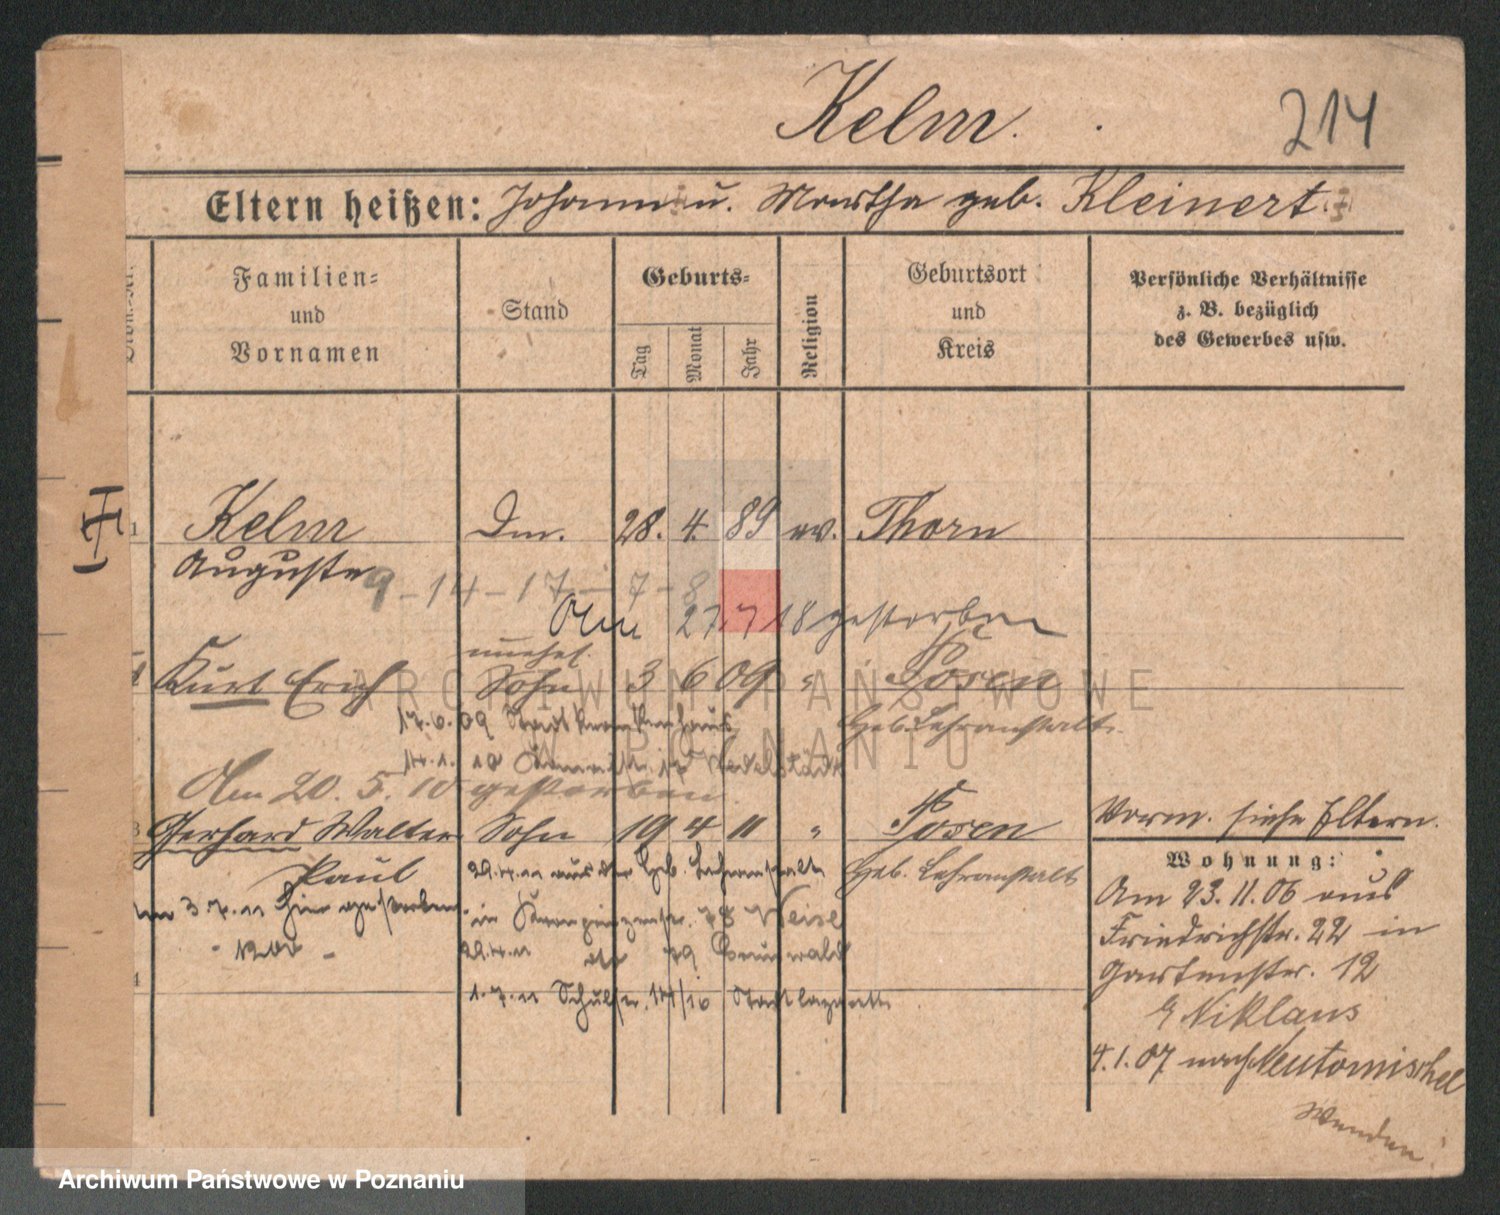 Kelm.
214
Eltern heißen: Johann u. Martha geb. Kleinert
Familien-
und
Vornamen
Stand
Geburts-
Tag
Monat
Jahr
Religion
Geburtsort
und
Kreis
Persönliche Verhältnisse
z. B. bezüglich
des Gewerbes usw.
1 Kelm Dm. 28. 4. 89 ev. Thorn
Auguste
9-14-17-7-8
Am 27.7.18 gestorben
unehel.
Kurt Erich Sohn 3 6 09 " Posen
17.6.09 Stadtkrankenhaus
Geb. Lehranstalt.
14.1. 10
Am 20. 5. 10 gestorben.
3 Gerhard Walter Sohn 19 4 11 " Posen
Paul
29.4.11 aus der Geb. Lehranstalt
Geb. Lehranstalt
3.7.11 hier gestorben
in Kronprinzenstr. 78 Weise
29.4.11 dto 79 Grunwald
4
1.7.11 Schulstr. 14/16 Stadtlazarett
Vorm. siehe Eltern.
Wohnung:
Am 23.11.06 aus
Friedrichstr. 22 in
Gartenstr. 12
Niklaus
4.1.07 nach Neutomischel
Wenden
ARCHIWUM PAŃSTWOWE
W POZNANIU
Archiwum Państwowe w Poznaniu